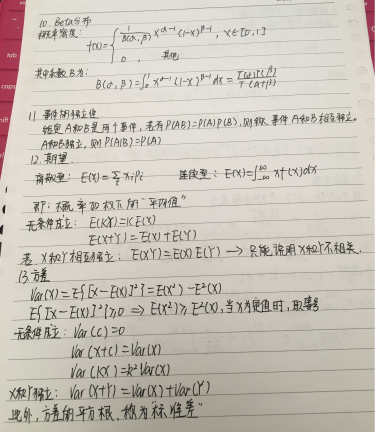 10. Beta分布
概率密度: f(x)={ 1/B(α,β) x^(α-1) (1-x)^(β-1), x∈[0,1]
0, 其他
其中系数B为:
B(α,β)=∫₀¹ x^(α-1) (1-x)^(β-1) dx = Γ(α)Γ(β)/Γ(α+β)
11. 事件的独立性
给定A和B是两个事件,若有P(AB)=P(A)P(B),则称事件A和B相互独立。
A和B独立,则P(A|B)=P(A)
12. 期望
离散型: E(X)=Σᵢ xᵢpᵢ 连续型: E(X)=∫_{-∞}^{∞} xf(x)dx
即:概率加权下的"平均值"
无条件成立: E(kX)=kE(X)
E(X+Y)=E(X)+E(Y)
若X和Y相互独立: E(XY)=E(X)E(Y) → 只能说明X和Y不相关.
13. 方差
Var(X)=E{[X-E(X)]²}=E(X²)-E²(X)
E{[X-E(X)]²}≥0 ⇒ E(X²)≥E²(X),当X为定值时,取等号
无条件成立: Var(C)=0
Var(X+C)=Var(X)
Var(kX)=k²Var(X)
X和Y独立: Var(X+Y)=Var(X)+Var(Y)
此外,方差的平方根,称为"标准差"
tab
caps